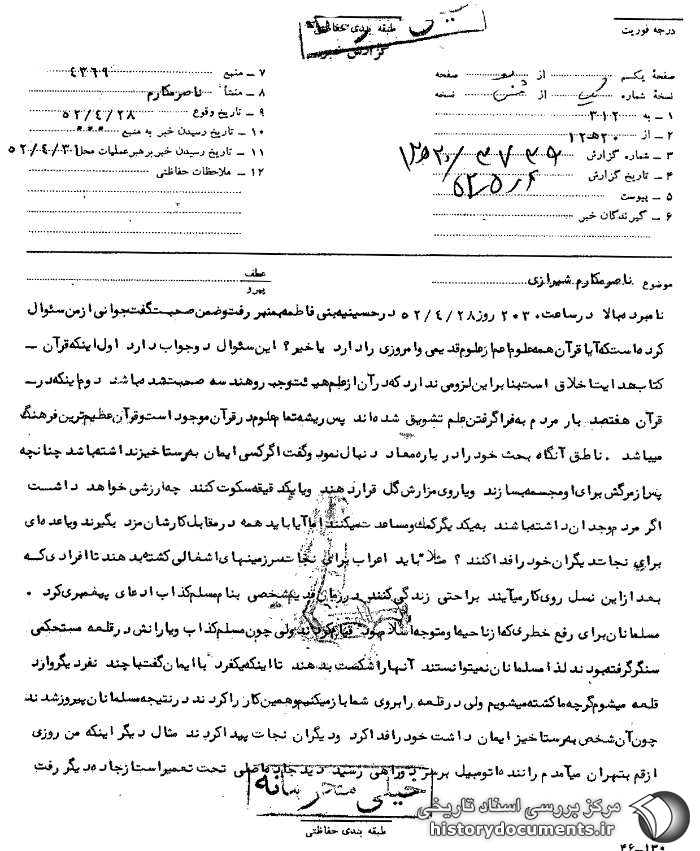 درجه فوریت
طبقه بندی حفاظتی
گزارش خبر
صفحهٔ یکم از دو صفحه
نسخهٔ شماره یک از شش نسخه
۱ ـ به ۳۱۲
۲ ـ از ۲۰ه۱۲
۳ ـ شماره گزارش
۴ ـ تاریخ گزارش
۵ ـ پیوست
۶ ـ گیرندگان خبر
۷ ـ منبع ۴۳۶۹
۸ ـ منشأ ناصرمکارم
۹ ـ تاریخ وقوع ۵۲/۴/۲۸
۱۰ ـ تاریخ رسیدن خبر به منبع
۱۱ ـ تاریخ رسیدن خبر برهبر عملیات محل ۵۲/۴/۳۱
۱۲ ـ ملاحظات حفاظتی
موضوع ناصرمکارم شیرازی
عطف
پیرو
نامبرده بالا در ساعت ۲۰۳۰ روز ۵۲/۴/۲۸ در حسینیه بنی فاطمه بمنبر رفت و ضمن صحبت گفت جوانی از من سئوال
کرده است که آیا قرآن همه علوم اعم از علوم قدیمی و امروزی را دارد یا خیر؟ این سئوال دو جواب دارد اول اینکه قرآن ـ
کتاب هدایت اخلاق است بنابراین لزومی ندارد که در آن از علم هیئت و جبر و هندسه صحبت شده باشد دوم اینکه در ـ
قرآن هفتصد بار مردم به فراگرفتن علم تشویق شده اند پس ریشه تمام علوم در قرآن موجود است و قرآن عظیم ترین فرهنگ
میباشد . ناطق آنگاه بحث خود را درباره معاد دنبال نمود و گفت اگر کسی ایمان به رستاخیز نداشته باشد چنانچه
پس از مرگش برای او مجسمه بسازند و یا روی مزارش گل قرار دهند و یا یک دقیقه سکوت کنند چه ارزشی خواهد داشت
اگر مردم وجدان داشته باشند به یکدیگر کمک و مساعدت میکنند اما آیا باید همه در مقابل کارشان مزد بگیرند و یا عده ای
برای نجات دیگران خود را فدا کنند ؟ مثلا باید اعراب برای نجات سرزمینهای اشغالی کشته بدهند تا افرادی که
بعد از این نسل روی کار میآیند براحتی زندگی کنند در زمان قدیم شخصی بنام مسلم کذاب ادعای پیغمبری کرد .
مسلمانان برای رفع خطری که از ناحیه او متوجه اسلام بود قیام کردند ولی چون مسلم کذاب و یارانش در قلعه مستحکمی
سنگر گرفته بودند لذا مسلمانان نمیتوانستند آنها را شکست بدهند تا اینکه یکفرد با ایمان گفت با چند نفر دیگر وارد
قلعه میشوم گرچه ما کشته میشویم ولی در قلعه را بروی شما باز میکنیم و همین کار را کردند در نتیجه مسلمانان پیروز شدند
چون آن شخص به رستاخیز ایمان داشت خود را فدا کرد و دیگران نجات پیدا کردند مثال دیگر اینکه من روزی
از قم بتهران میآمدم راننده اتومبیل بر سر دوراهی رسید دید جاده اصلی تحت تعمیر است از جاده دیگر رفت
خیلی محرمانه
طبقه بندی حفاظتی
مرکز بررسی اسناد تاریخی
historydocuments.ir
۴۶-۱۳۰